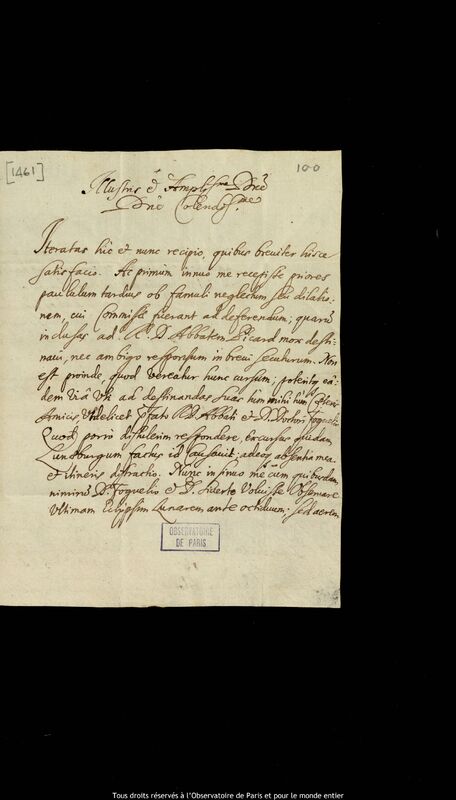 [1461]
100
Illustris & Ampliss.me Dne
Dne Colendiss.me
Iteratas hic et nunc recipio, quibus breviter hisce
satisfacio. Ac primum innuo me recepisse priores
paululum tardius ob famuli neglectum seu dilatio-
nem, cui commissæ fuerant ad deferendum; quarū
inclusas ad R. D. Abbatem Picard mox desti-
navi, nec ambigo responsum in brevi secuturum. Non
est proinde, quod vereatur hunc cursum; poteritq eâ-
dem viâ uti ad destinandas suas tum mihi tum cæteris
Amicis, videlicet R. D. Abbati et D. Doctori Fogelio
Quod porro distulerim respondere, excursus quidam
Lundburgum factus id causavit; adeoq absentia mea
et itineris distractio. Nunc innuo me cum quibusdam
nimirū D. Fogelio et D. Siverto voluisse observare
ultimam Eclypsim Lunarem ante octiduum; sed aerem
OBSERVATOIRE
DE PARIS
Tous droits réservés à l'Observatoire de Paris et pour le monde entier